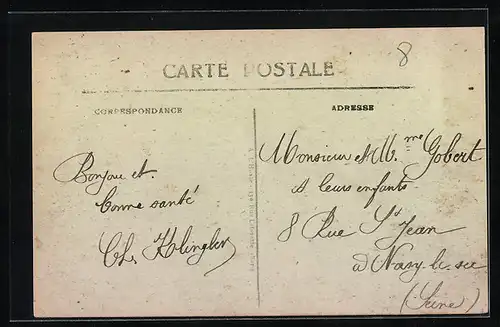 8
CARTE POSTALE
CORRESPONDANCE
ADRESSE
Bonjour et
bonne santé
Ch. Klingler
Monsieur et M.me Gobert
et leurs enfants
8 Rue St Jean
à Noisy-le-sec
(Seine)